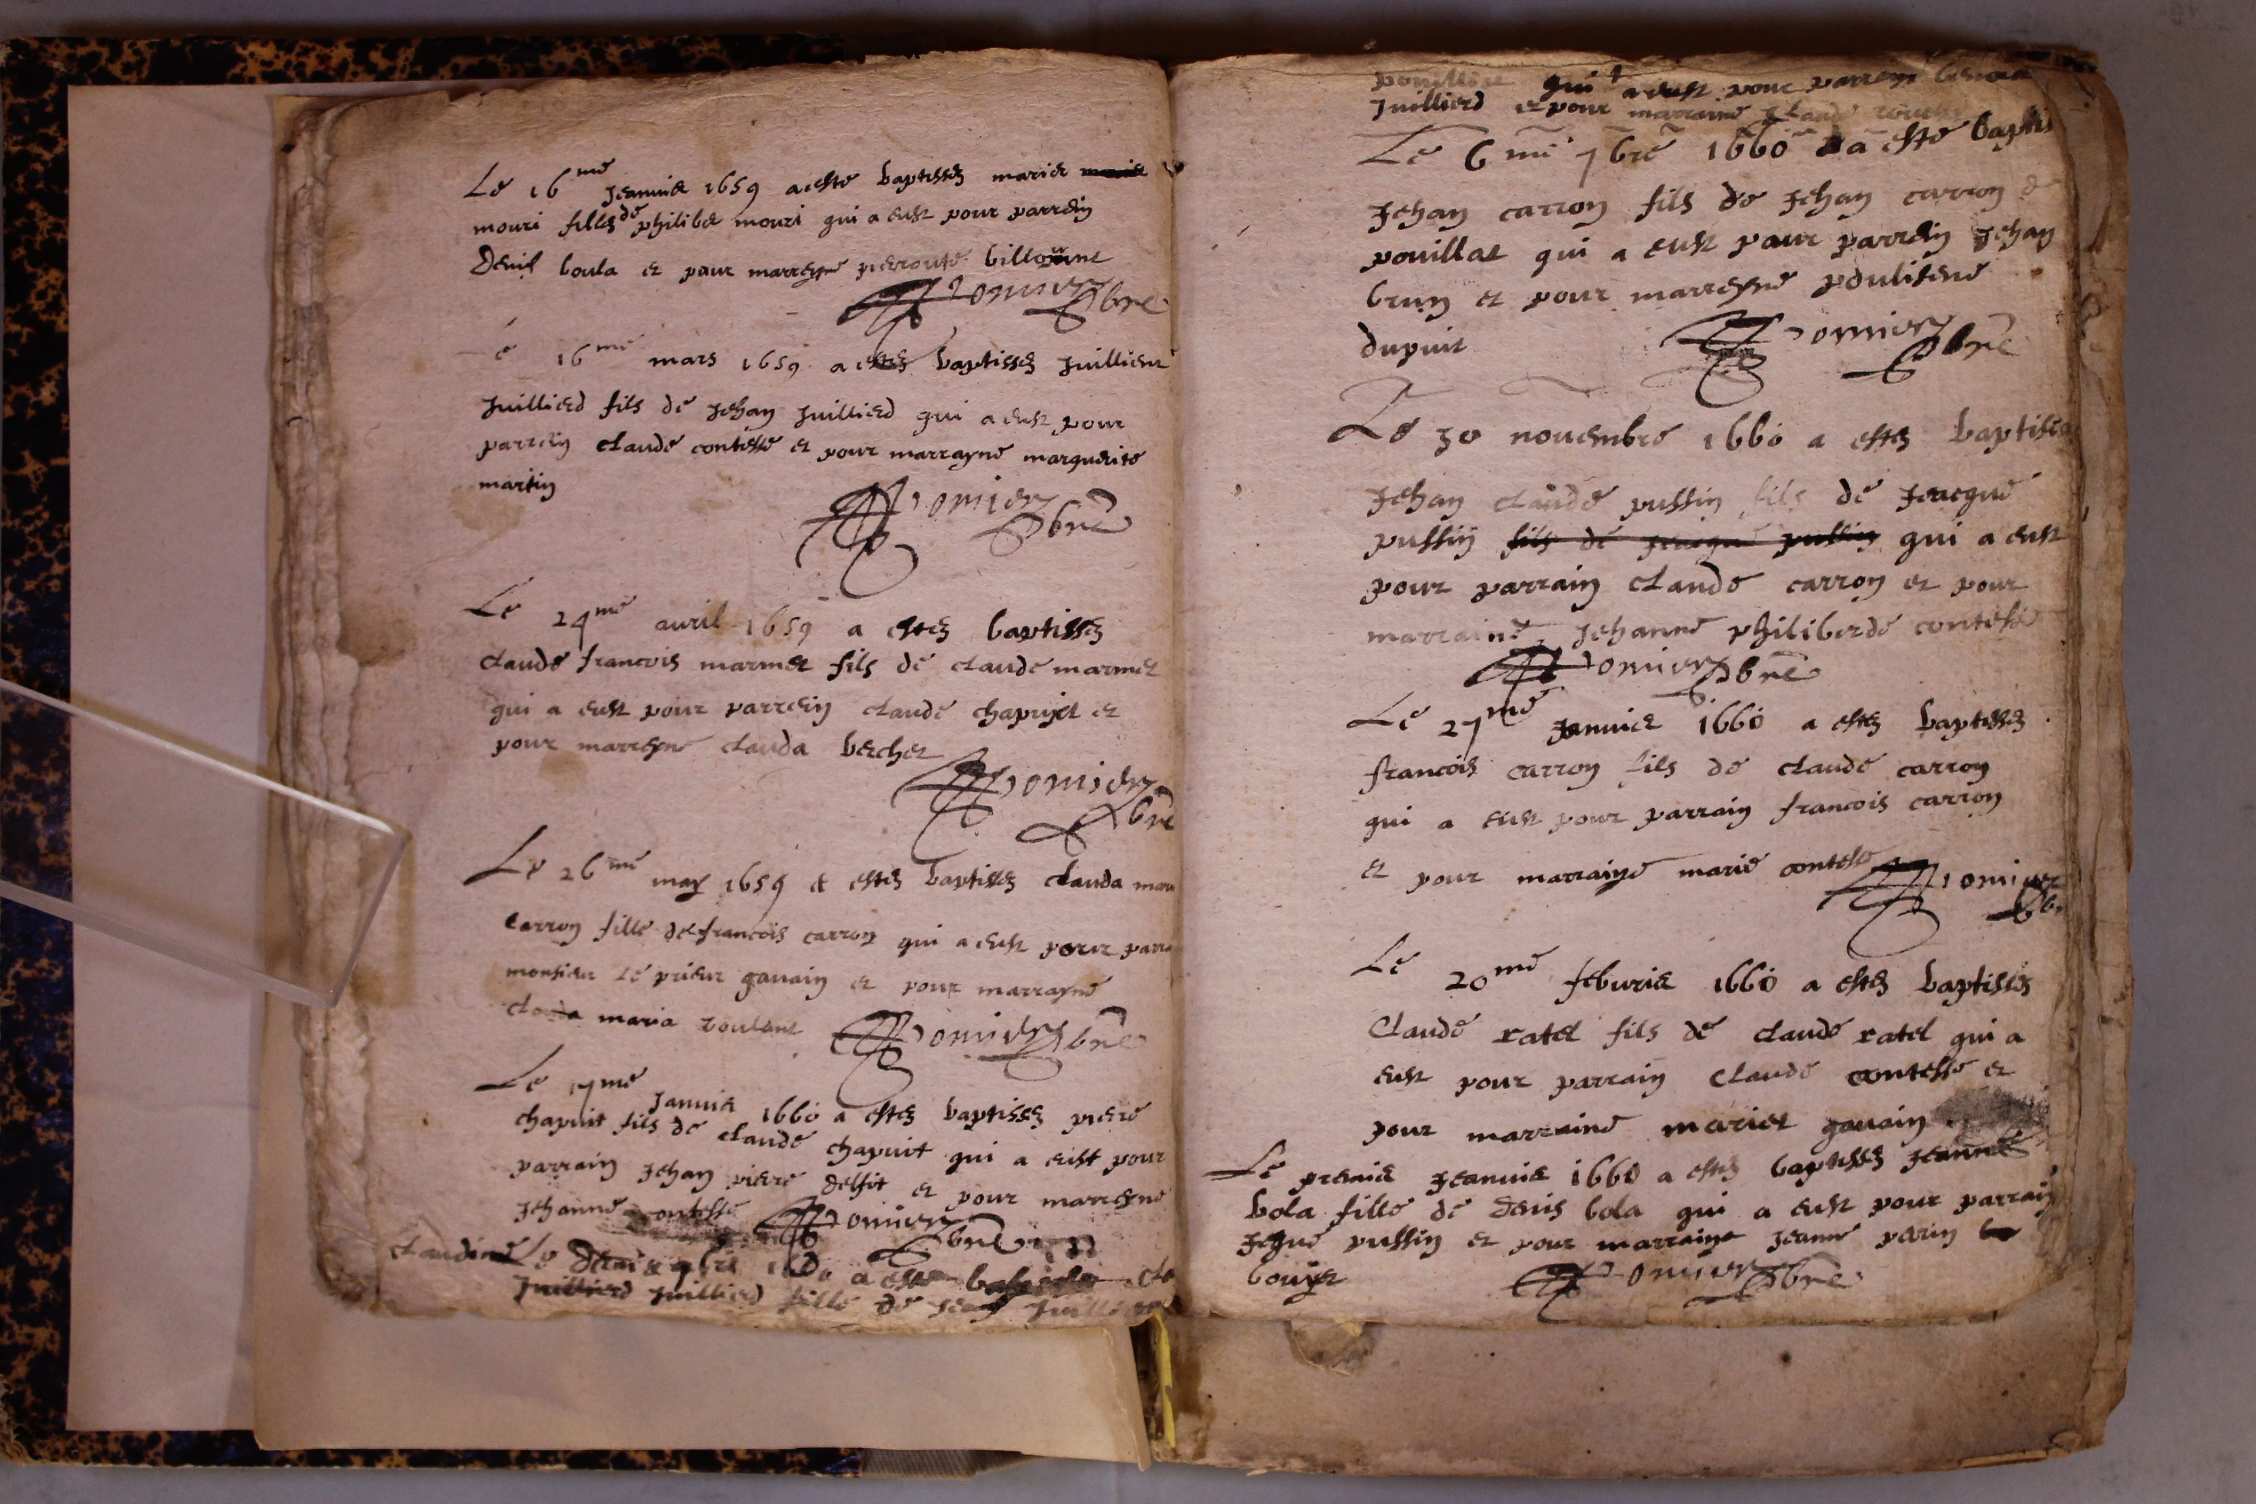 Le 16me Jeanvier 1659 a este baptissez marie marie
mouri filles de philiber mouri qui a eust pour parrein
Denis boula et pour marreyne pierroute
Romier pbre
Le 16me mars 1659 a estez baptissez Juillienne
Juillierd fils de Jehan Juillierd qui a eust pour
parrein claude contesse et pour marrayne marguerite
martin
Romier pbre
Le 24me auril 1659 a estez baptissez
claude francois marmet fils de claude marmet
qui a eust pour parrein claude chapuit et
pour marreyne clauda berchet
Romier pbre
Le 26me may 1659 a estez baptissez clauda
carron fille de francois carron qui a eust pour
monsieur le prieur gauain et pour marrayne
clauda maria roulant
Romier pbre
Le 17me Januier 1660 a estez baptissez piere
chapuit fils de claude chapuit qui a eust pour
parrain Jehan piere delfit et pour marreyne
Jehanne contesse
Romier pbre
claudine Le 1660 a este
Juillierd Juillierd fille de
qui a eust pour parrein
Juillierd et pour marraine claude
Le 6me 7bre 1660 a este baptis
Jehan carron fils de Jehan carron de
pouillat qui a eust pour parrein Jehan
brun et pour marreyne
dupuit
Romier pbre
Le 30 nouembre 1660 a estez baptise
Jehan claude pussin fils de Jeacque
pussin fils de Jeacque pussin qui a eust
pour parrain claude carron et pour
marraine Jehanne philiberde contesse
Romier pbre
Le 27me Januier 1660 a estez baptissez
francois carron fils de claude carron
qui a eust pour parrain francois carrion
et pour marraine marie contesse
Romier pbre
Le 20me feburier 1660 a estez baptissez
Claude ratel fils de claude ratel qui a
eust pour parrain Claude contesse et
pour marraine mariet gauain
Le premier Jeanuier 1660 a estez baptissez Jeanne
bola fille de denis bola qui a eust pour parrain
Jeque pussin et pour marraine Jeanne perin
bouyet
Romier pbre